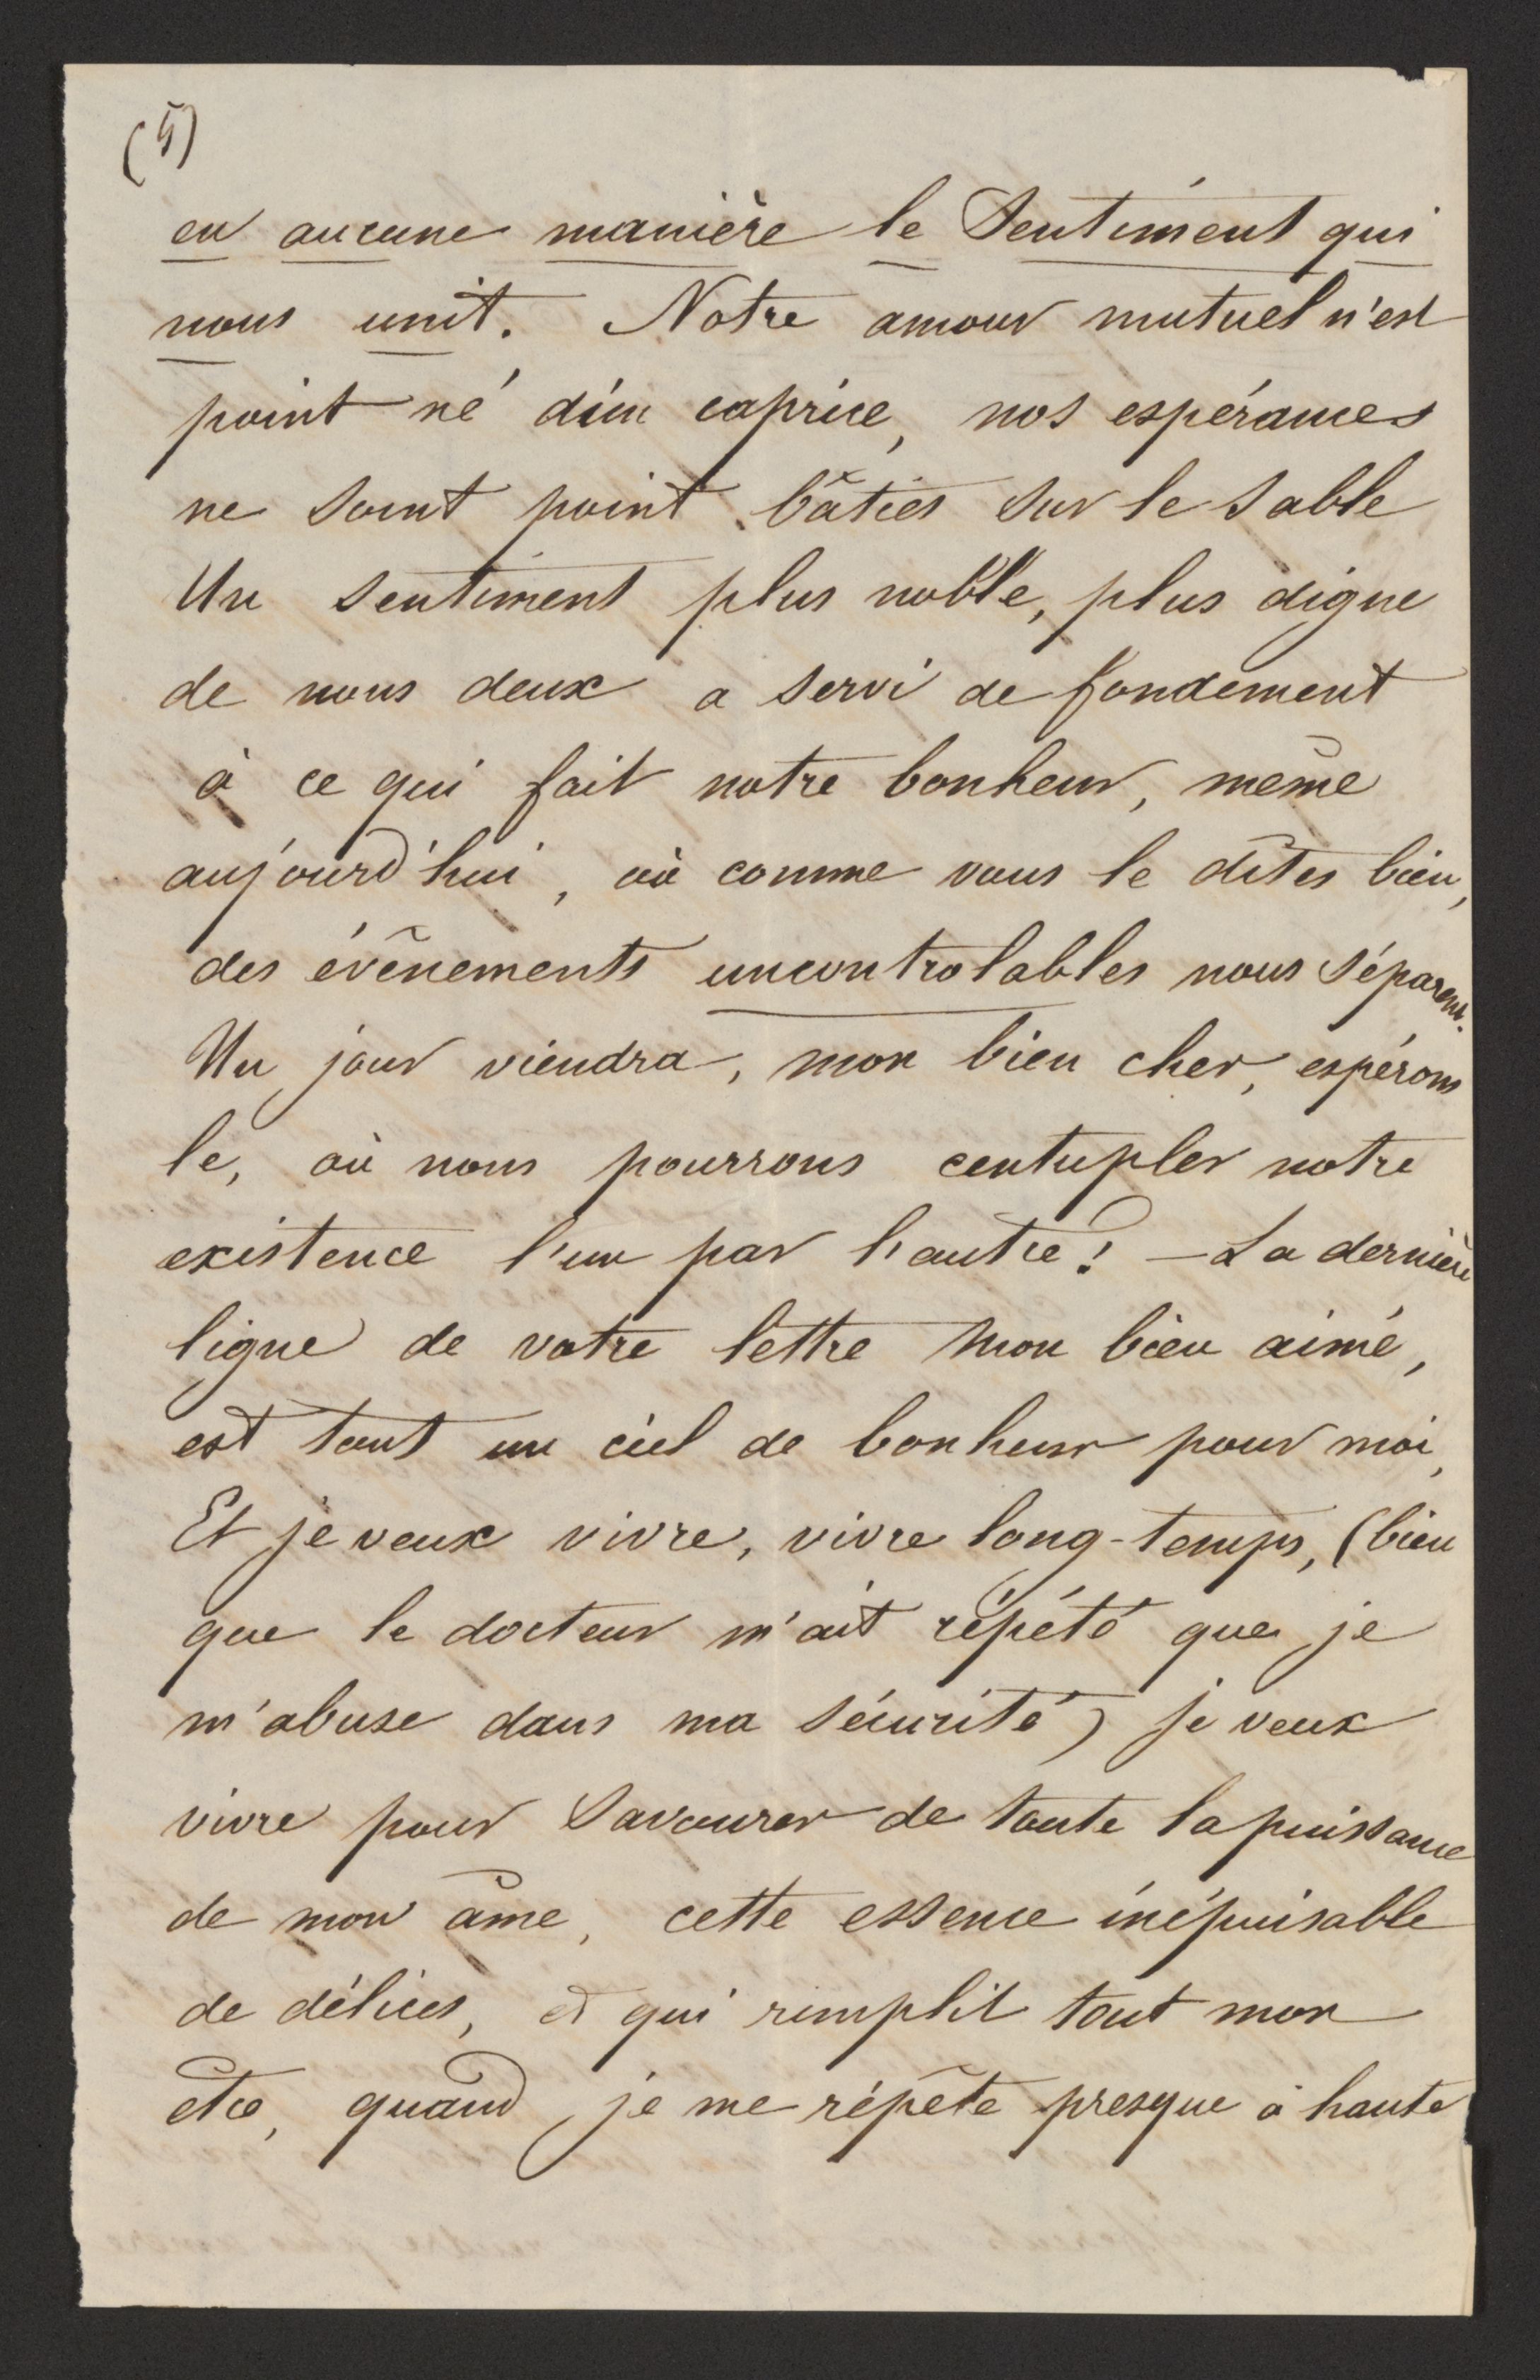 (5)
en aucune manière le Sentiment qui
nous unit. Notre amour mutuel n'est
point né d'un caprice, nos espérances
ne sont point bâties sur le sable
Un sentiment plus noble, plus digne
de nous deux a servi de fondement
à ce qui fait notre bonheur, même
aujourd'hui, où comme vous le dîtes bien,
des évênements uncontrolables nous séparent.
Un jour viendra, mon bien cher, espérons
le, où nous pourrons centupler notre
existence l'un par l'autre! — La dernière
ligne de votre lettre mon bien aimé,
est tout un ciel de bonheur pour moi,
Et je veux vivre, vivre long-temps, (bien
que le docteur m'ait répété que je
m'abuse dans ma sécurité) je veux
vivre pour savourer de toute la puissance
de mon âme, cette essence inépuisable
de délices, et qui remplit tout mon
être, quand je me répête presque à haute